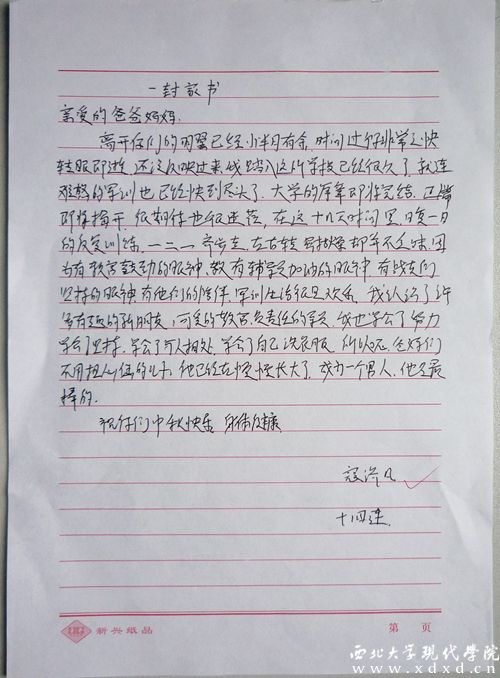 一封家书
亲爱的爸爸妈妈:
离开你们的羽翼已经小半月有余,时间过得非常之快
转眼即逝,还没反映过来我踏入这所学校已经很久了,就连
难熬的军训也已经快到尽头了。大学的序幕即将完结,正篇
即将揭开,很期待也很迷茫,在这十几天时间里,日复一日
的反复训练,一二一,齐步走,左右转,号摆臂都年不乏味,因
为有教官鼓动的眼神,教有辅导员加油的眼神,有战友们
坚持的眼神,有他们的陪伴,军训生活很是欢乐,我认识了许
多有趣的新朋友,可爱的教官,负责任的学长,我也学会了努力
学会了坚持,学会了与人相处,学会了自己洗衣服,所以呢,爸妈们
不用担心你的儿子,他已经在慢慢长大了,成为一个男人,他是最
棒的。
祝你们中秋快乐,身体健康
寇济凡
十四连
新兴纸品
第 页
西北大学现代学院
www.xdxd.cn